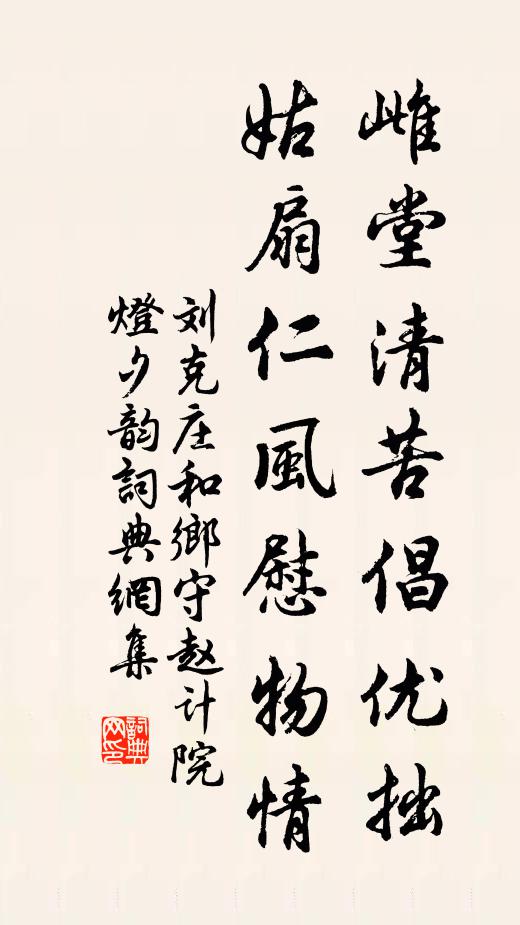 雌堂清苦倡优拙
姑扇仁風慰物情
刘克庄和鄉守赵计院
燈夕韵詞典網集
詞典网印